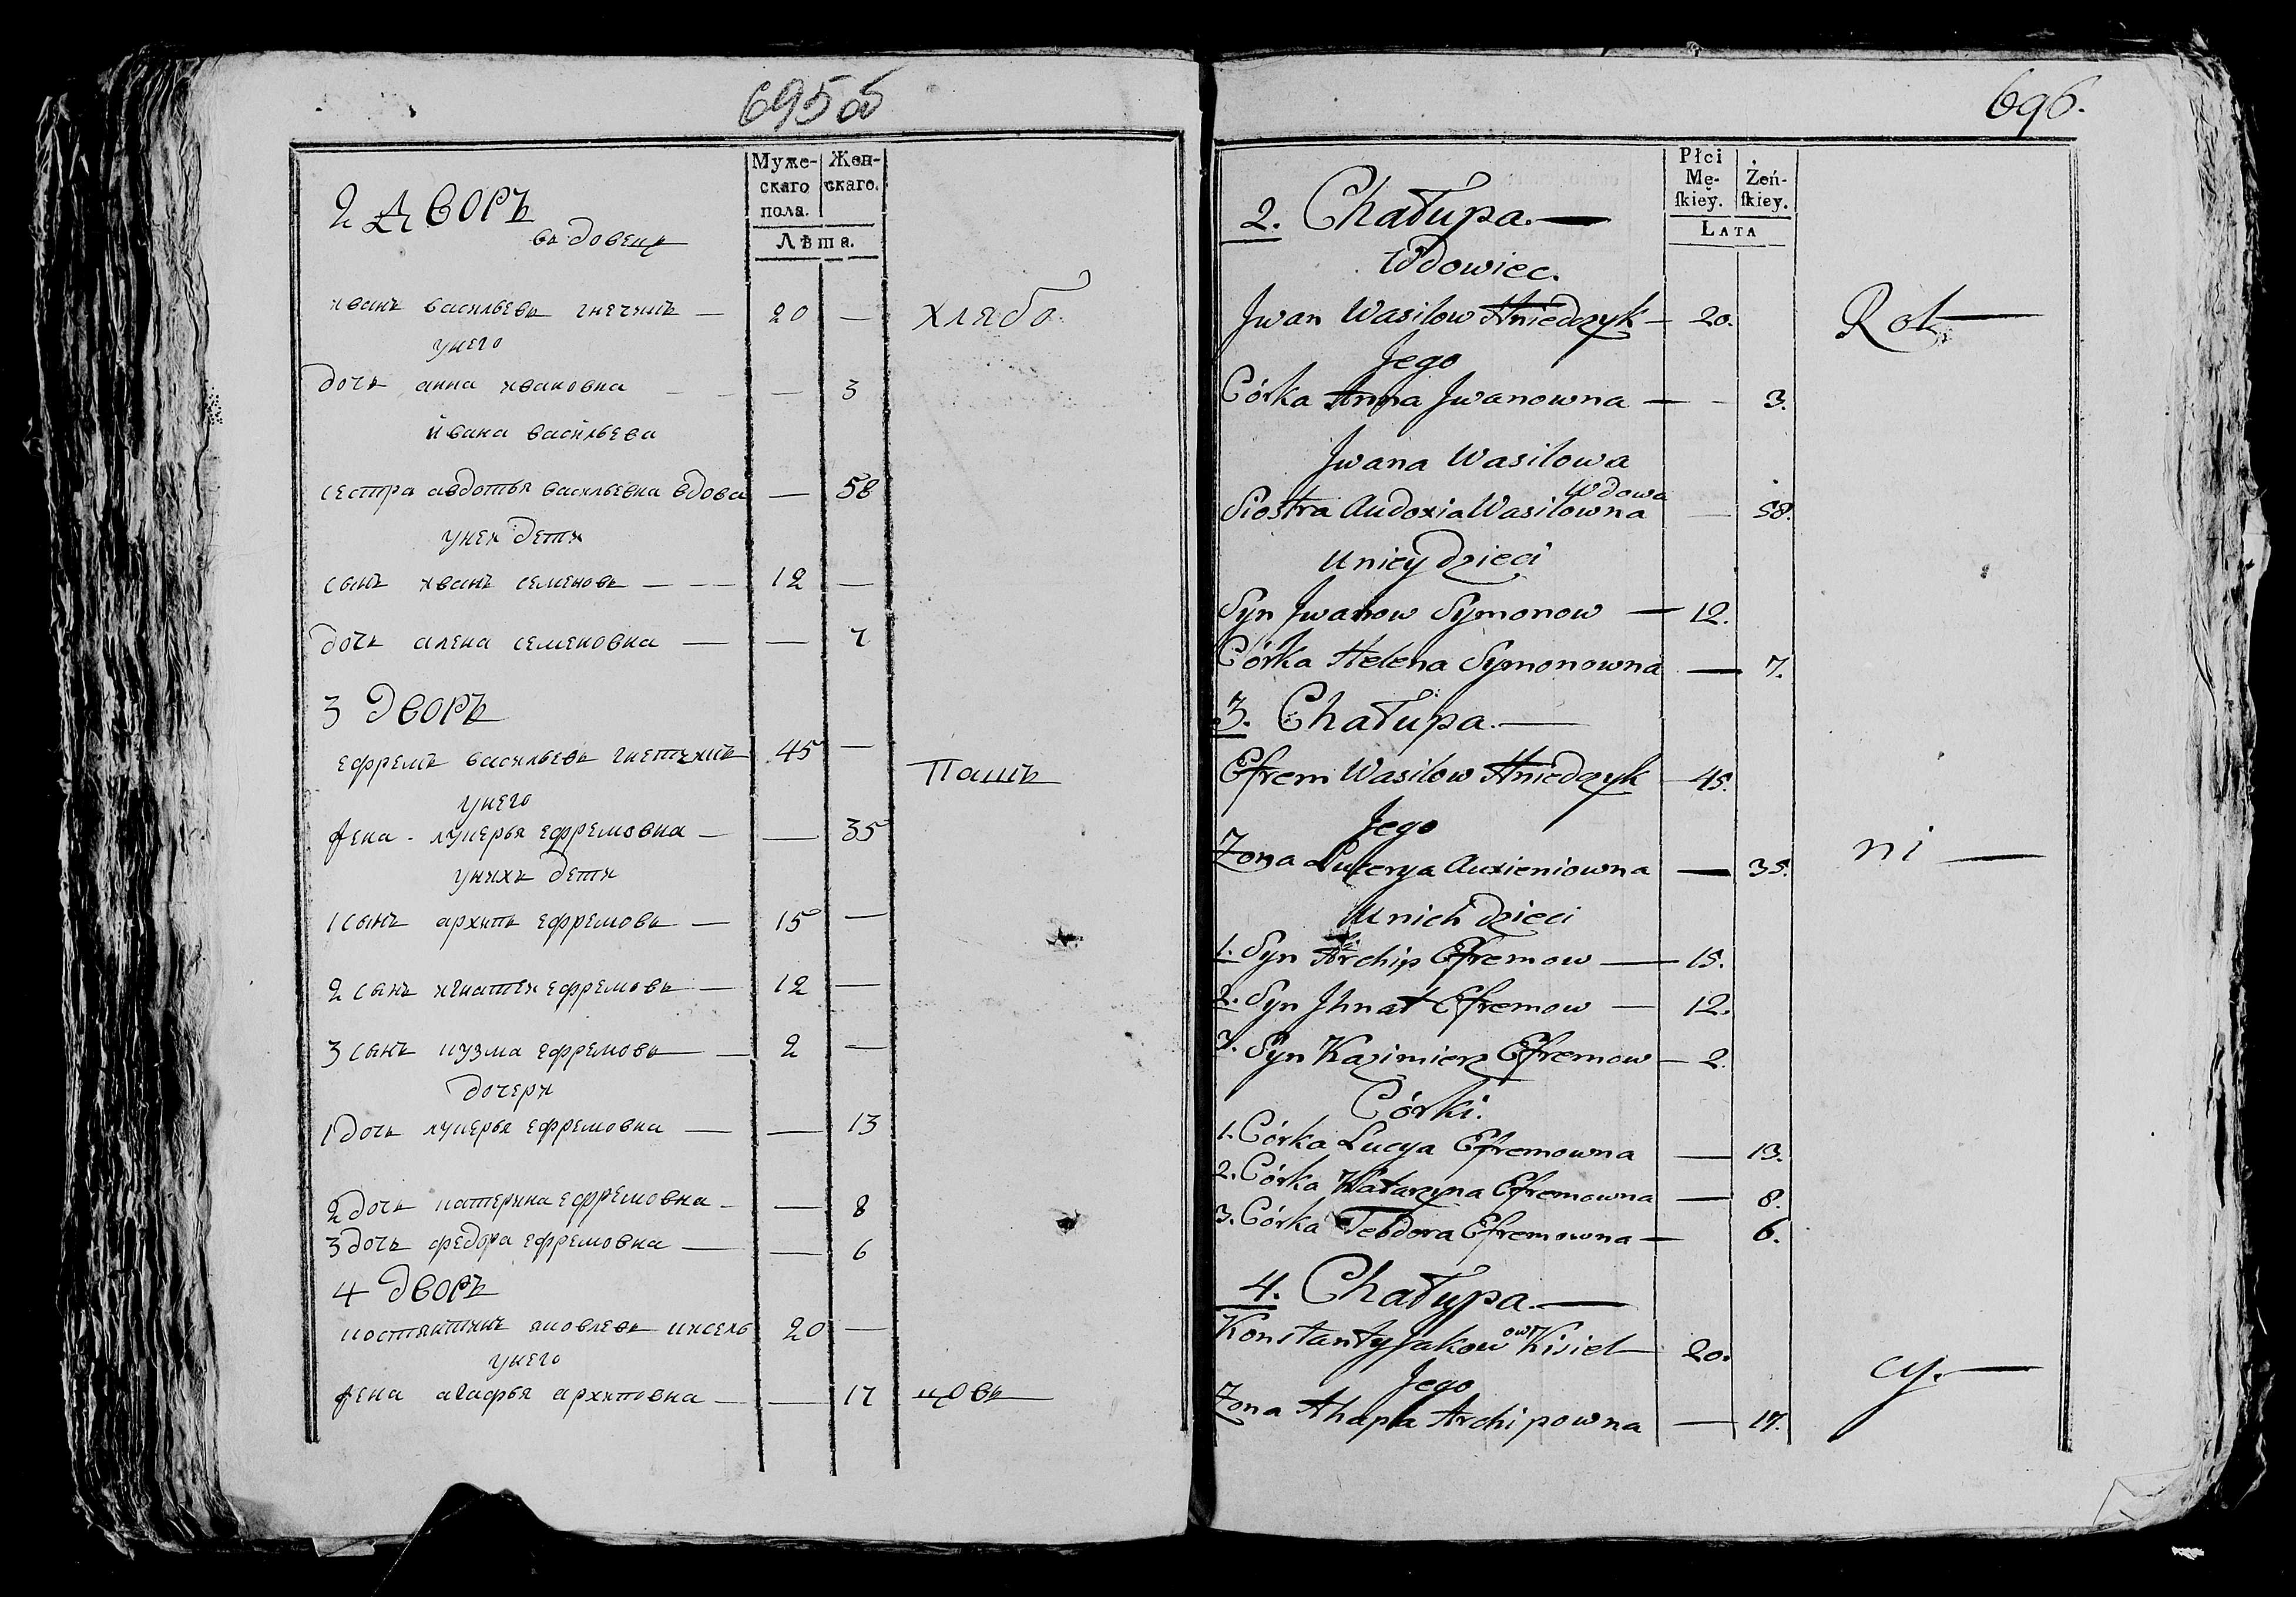 695 об
Муже-
скаго
пола.
Жен-
скаго.
Лѣта.
2 Дворъ
вдовецъ
иванъ васильевъ гнечикъ — 20 — хлѣбо
унего
дочь анна ивановна — — 3
ивана васильева
сестра авдотья васильевна вдова — 58
унея дети
сынъ иванъ семеновъ — 12 —
дочь алена семеновна — — 7
3 дворъ
ефремъ васильевъ гнетчикъ 45 —
Пашъ
унего
жена лукерья ефремовна — — 35
унихъ дети
1 сынъ архипъ ефремовъ — 15 —
2 сынъ игнатеи ефремовъ — 12 —
3 сынъ кузма ефремовъ — 2 —
дочери
1 дочь лукерья ефремовна — — 13
2 дочь катерина ефремовна — — 8
3 дочь федора ефремовна — — 6
4 дворъ
костянтинъ яковлевъ кисель 20 —
унего
жена агафья архиповна — — 17 цовъ
696.
Płci
Mę-
ſkiey.
Żeń-
ſkiey.
Lata
2. Chałupa. —
Wdowiec.
Jwan Wasilow Hniedczyk — 20. Rol —
Jego
Córka Anna Jwanowna — - 3.
Jwana Wasilowa
Wdowa
Siostra Audoxia Wasilowna — 58.
u niey dzieci
Syn Jwanow Symonow — 12.
Córka Helena Symonowna — 7.
3. Chałupa. —
Efrem Wasilow Hniedczyk — 45.
Jego
Zona Lukerya Auxieniowna — 35. ni —
u nich dzieci
1. Syn Archip Efremow — 15.
2. Syn Jhnat Efremow — 12.
3. Syn Kazimierz Efremow — 2.
Córki.
1. Córka Lucya Efremowna — 13.
2. Córka Katarzyna Efremowna — 8.
3. Córka Teodora Efremowna — 6.
4. Chałupa. —
Konstanty Jakow ow Kisiel — 20.
Jego cy. —
Zona Ahapa Archipowna — 17.